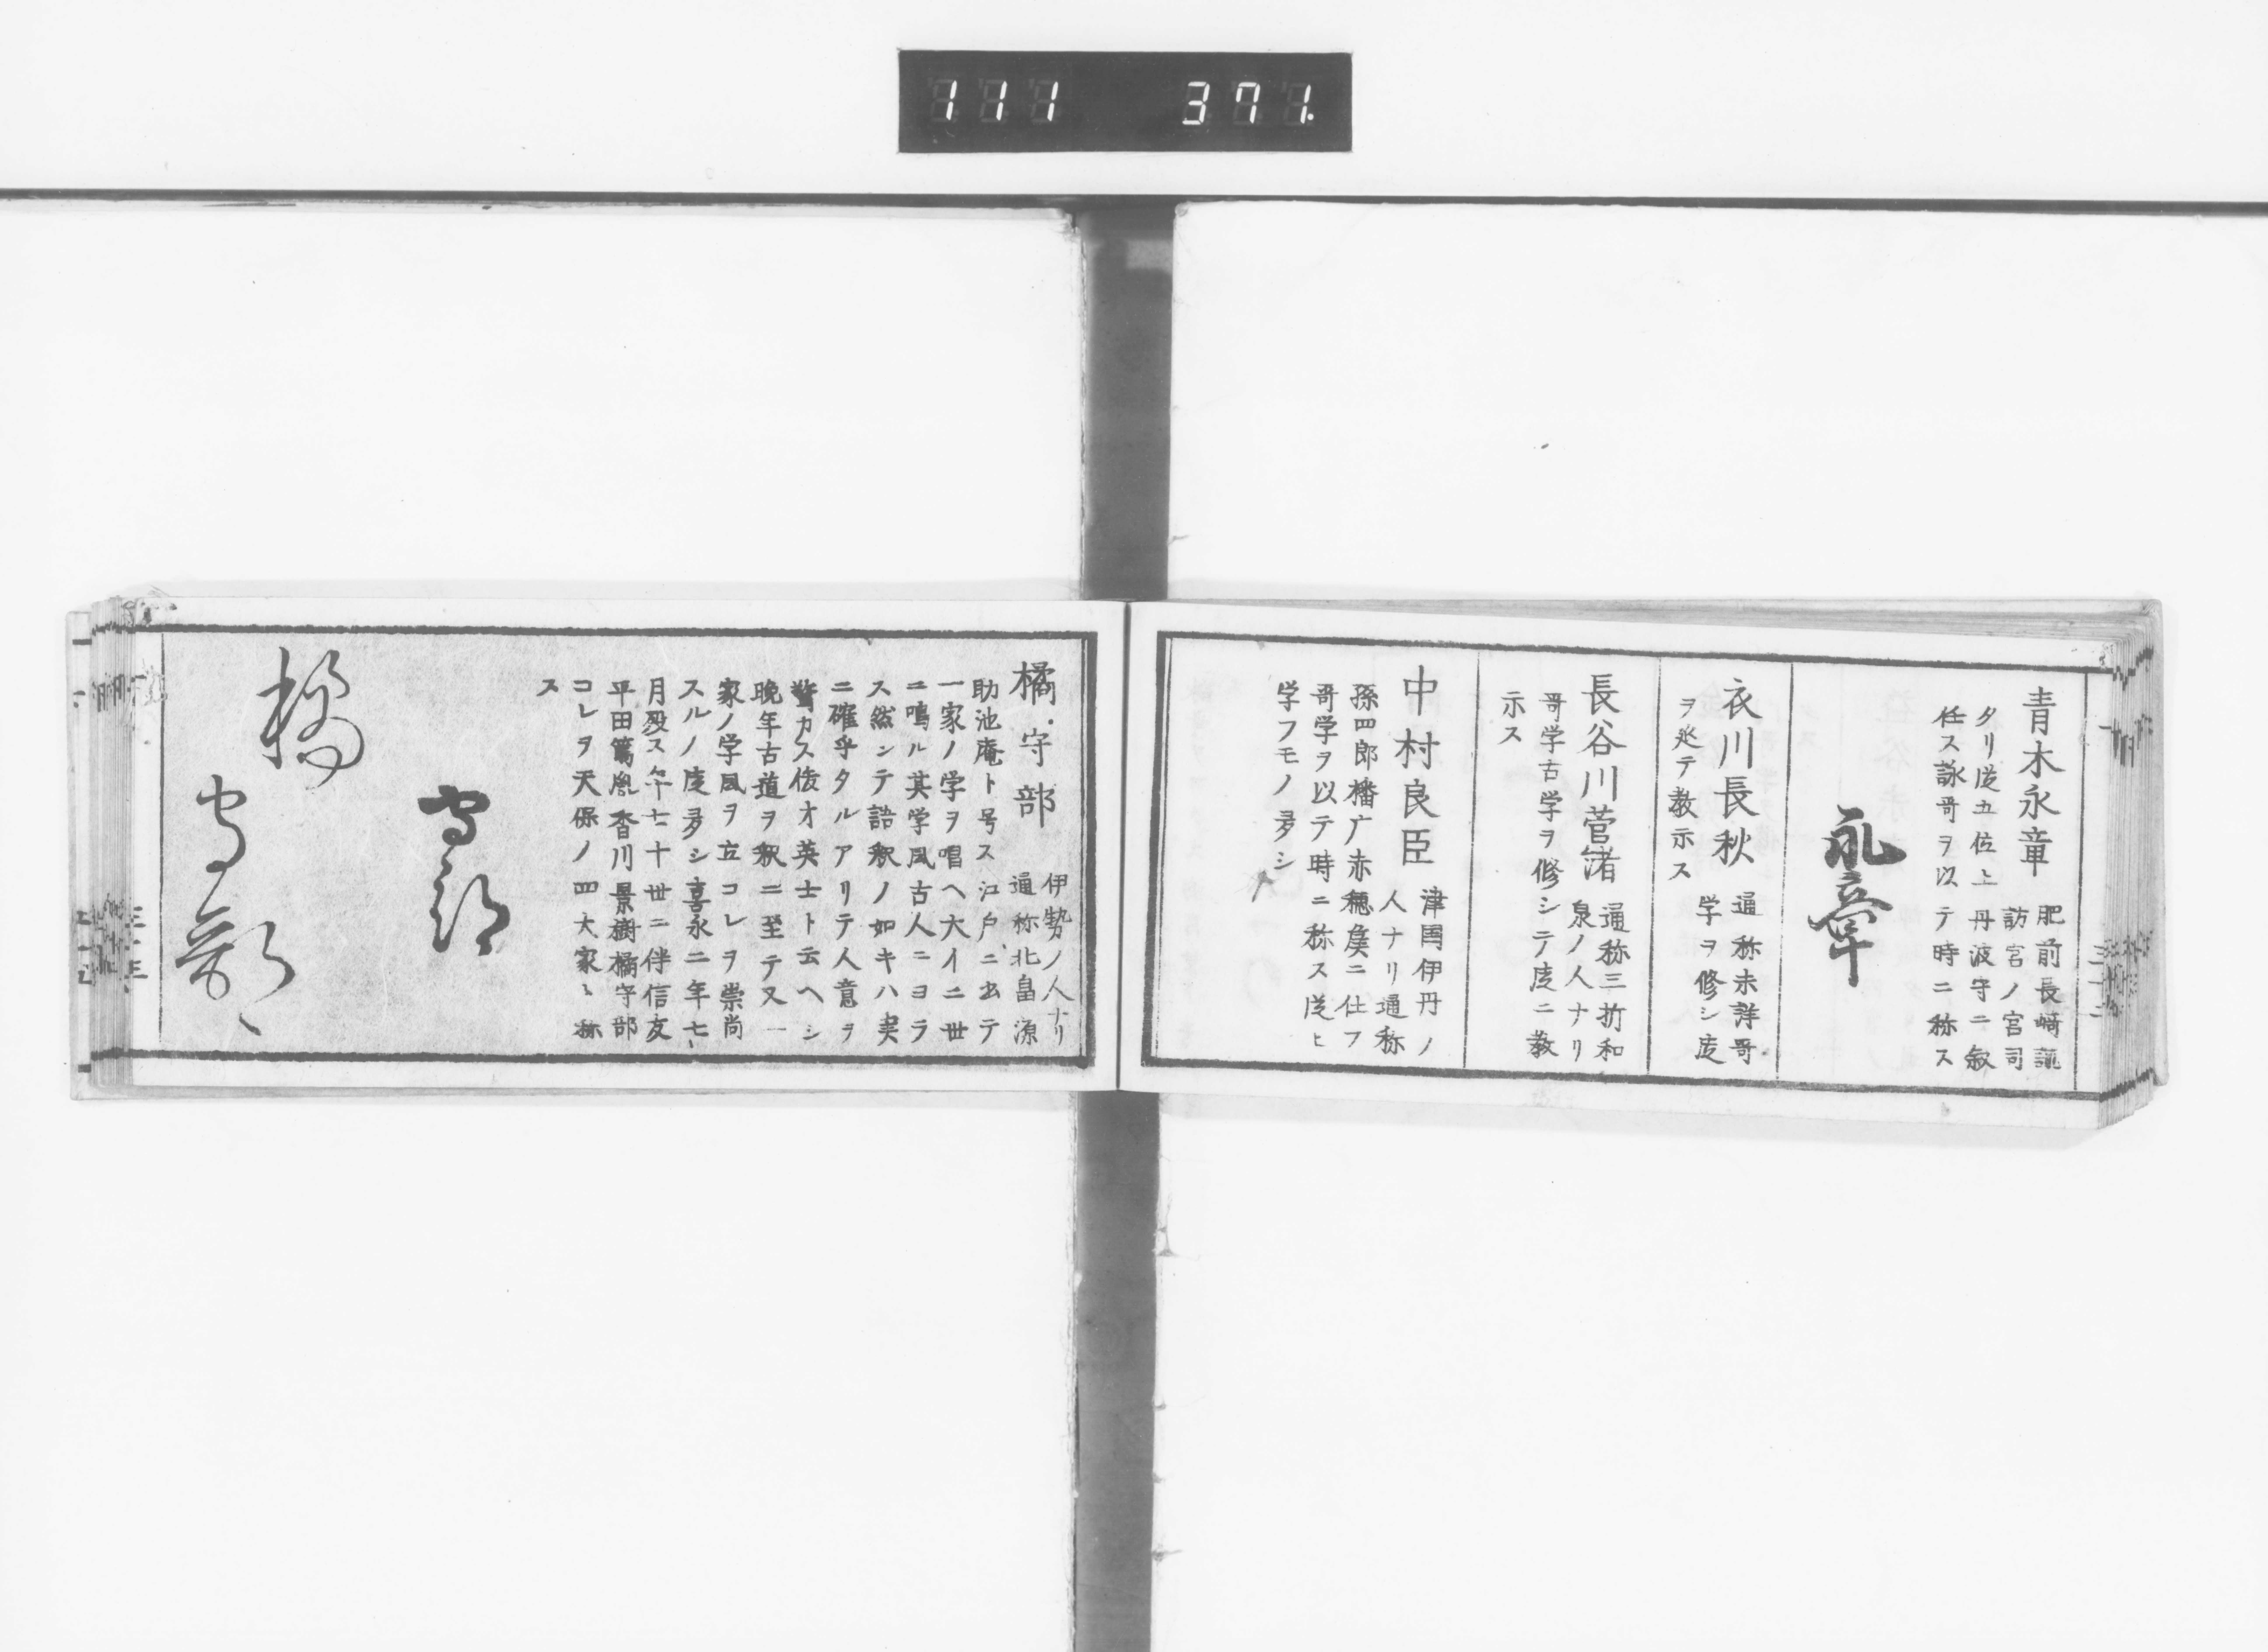 111 371.
青木永章
肥前長崎諏
訪宮ノ宮司
タリ従五位上丹波守ニ叙
任ス詠哥ヲ以テ時ニ称ス
永章
衣川長秋
通称未詳哥
学ヲ修シ度
ヲ延テ教示ス
長谷川菅渚
通称三折和
泉ノ人ナリ
哥学古学ヲ修シテ度ニ教
示ス
中村良臣
津国伊丹ノ
人ナリ通称
孫四郎播广赤穂矦ニ仕フ
哥学ヲ以テ時ニ称ス従ヒ
学フモノ多シ
橘守部
伊勢ノ人ナリ
通称北畠源
助池庵ト号ス江戸ニ出テ
一家ノ学ヲ唱ヘ大イニ世
ニ鳴ル其学風古人ニヨラ
ス然シテ語釈ノ如キハ実
ニ確乎タルアリテ人意ヲ
驚カス俊才英士ト云ヘシ
晩年古道ヲ釈ニ至テ又一
家ノ学風ヲ立コレヲ崇尚
スルノ度多シ嘉永二年七
月歿ス年七十世ニ伴信友
平田篤胤香川景樹橘守部
コレヲ天保ノ四大家ト称
ス
守部
橘
守部